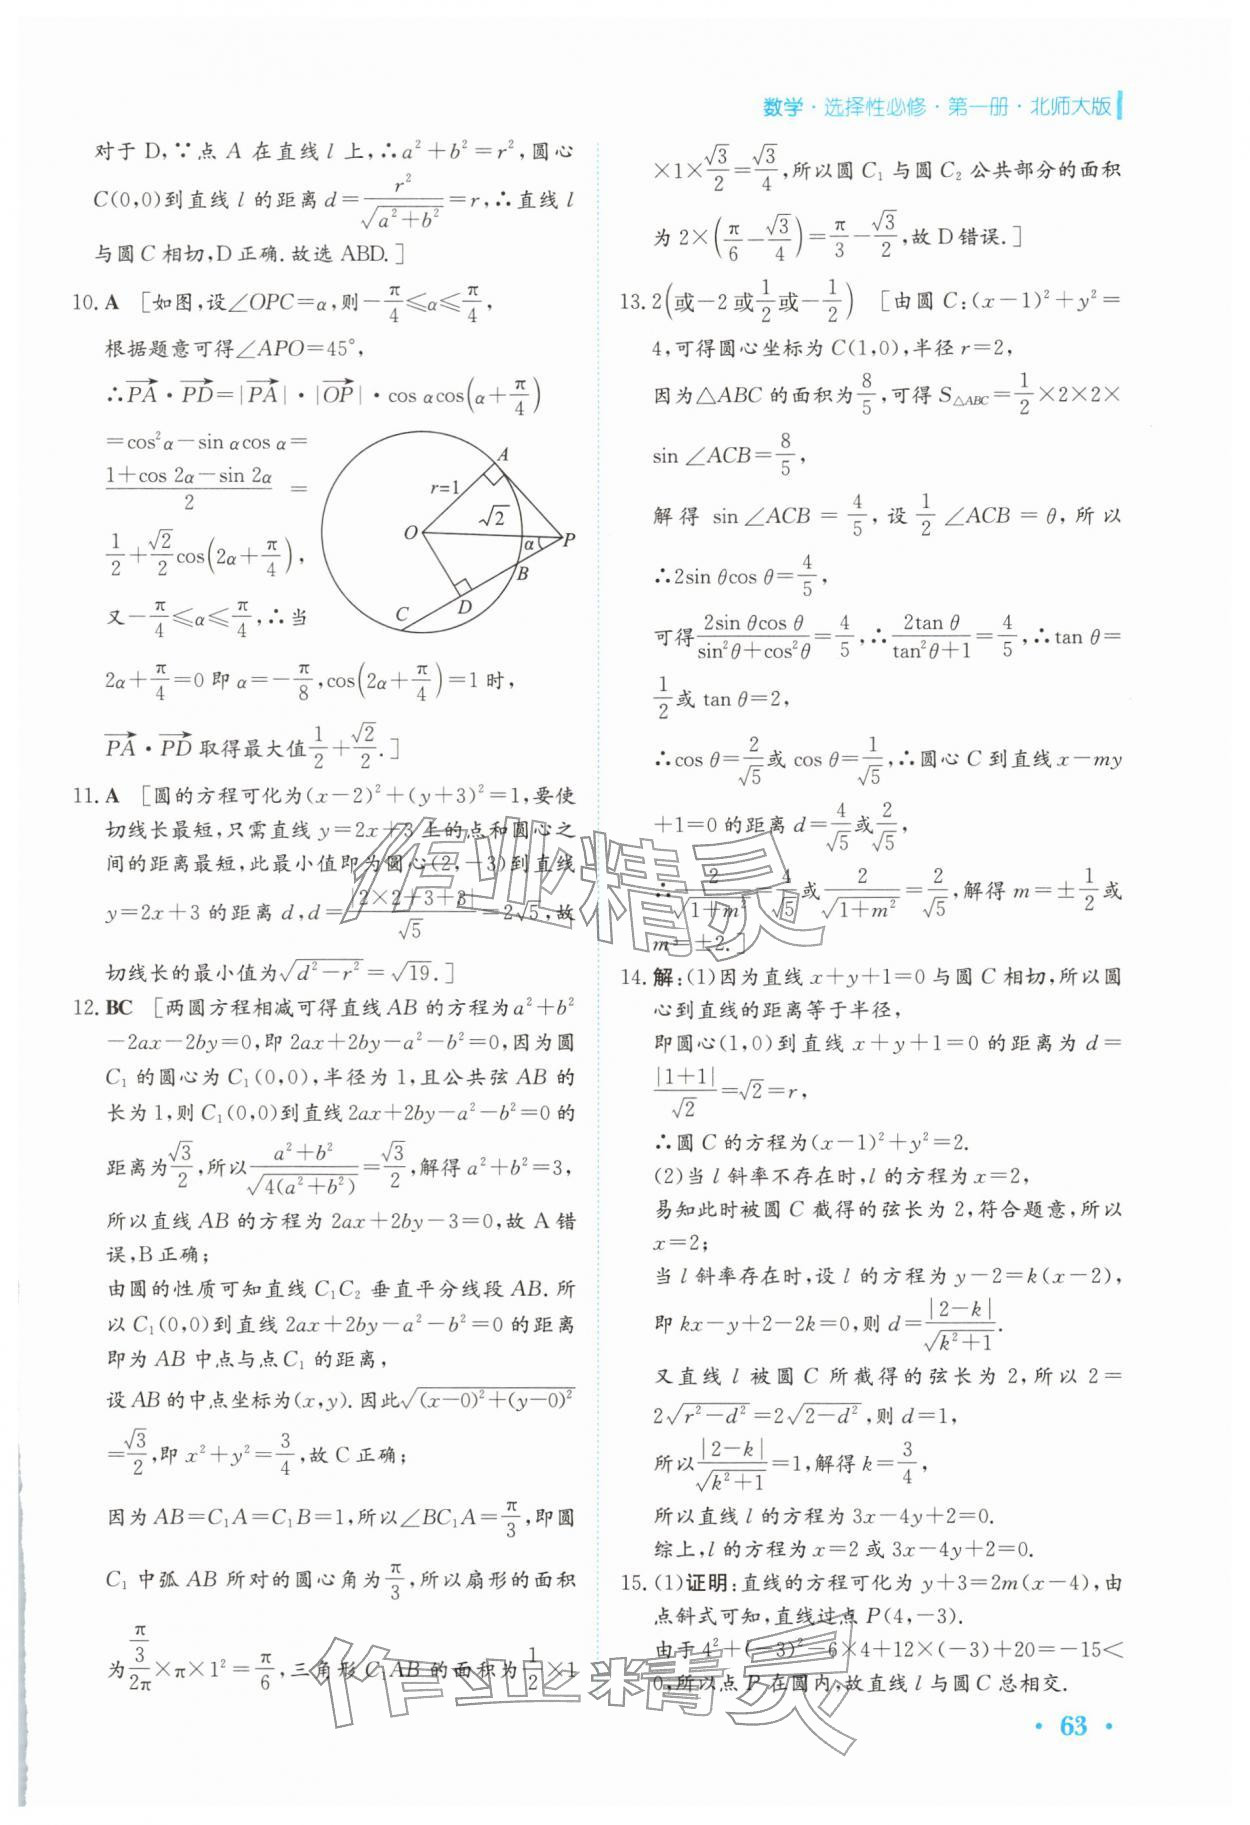 数学·选择性必修·第一册·北师大版
对于 D,∵点 A 在直线 l 上,∴a²+b²=r²,圆心
C(0,0)到直线 l 的距离 d=r²/√(a²+b²)=r,∴直线 l
与圆 C 相切,D 正确.故选 ABD.]
10. A [如图,设∠OPC=α,则-π/4≤α≤π/4,
根据题意可得∠APO=45°,
∴PA→·PD→=|PA→|·|OP→|·cos αcos(α+π/4)
=cos²α-sin αcos α=
(1+cos 2α-sin 2α)/2 =
1/2+√2/2cos(2α+π/4),
又-π/4≤α≤π/4,∴当
2α+π/4=0 即 α=-π/8,cos(2α+π/4)=1 时,
PA→·PD→取得最大值1/2+√2/2.]
A
r=1
√2
O
α
P
B
D
C
11. A [圆的方程可化为(x-2)²+(y+3)²=1,要使
切线长最短,只需直线 y=2x+3 上的点和圆心之
间的距离最短,此最小值即为圆心(2,-3)到直线
y=2x+3 的距离 d,d=|2×2+3+3|/√5=2√5,故
切线长的最小值为√(d²-r²)=√19.]
12. BC [两圆方程相减可得直线 AB 的方程为 a²+b²
-2ax-2by=0,即 2ax+2by-a²-b²=0,因为圆
C₁ 的圆心为 C₁(0,0),半径为 1,且公共弦 AB 的
长为 1,则 C₁(0,0)到直线 2ax+2by-a²-b²=0 的
距离为√3/2,所以(a²+b²)/√(4(a²+b²))=√3/2,解得 a²+b²=3,
所以直线 AB 的方程为 2ax+2by-3=0,故 A 错
误,B 正确;
由圆的性质可知直线 C₁C₂ 垂直平分线段 AB.所
以 C₁(0,0)到直线 2ax+2by-a²-b²=0 的距离
即为 AB 中点与点 C₁ 的距离,
设 AB 的中点坐标为(x,y).因此√((x-0)²+(y-0)²)
=√3/2,即 x²+y²=3/4,故 C 正确;
因为 AB=C₁A=C₁B=1,所以∠BC₁A=π/3,即圆
C₁ 中弧 AB 所对的圆心角为π/3,所以扇形的面积
为(π/3)/2π×π×1²=π/6,三角形 C₁AB 的面积为1/2×1
×1×√3/2=√3/4,所以圆 C₁ 与圆 C₂ 公共部分的面积
为 2×(π/6-√3/4)=π/3-√3/2,故 D 错误.]
13. 2(或-2或1/2或-1/2) [由圆 C:(x-1)²+y²=
4,可得圆心坐标为 C(1,0),半径 r=2,
因为△ABC 的面积为8/5,可得 S△ABC=1/2×2×2×
sin ∠ACB=8/5,
解得 sin ∠ACB=4/5,设1/2∠ACB=θ,所以
∴2sin θcos θ=4/5,
可得2sin θcos θ/(sin²θ+cos²θ)=4/5,∴2tan θ/(tan²θ+1)=4/5,∴tan θ=
1/2或 tan θ=2,
∴cos θ=2/√5或 cos θ=1/√5,∴圆心 C 到直线 x-my
+1=0 的距离 d=4/√5或2/√5,
∴2/√(1+m²)=4/√5或2/√(1+m²)=2/√5,解得 m=±1/2或
m=±2.]
14. 解:(1)因为直线 x+y+1=0 与圆 C 相切,所以圆
心到直线的距离等于半径,
即圆心(1,0)到直线 x+y+1=0 的距离为 d=
|1+1|/√2=√2=r,
∴圆 C 的方程为(x-1)²+y²=2.
(2)当 l 斜率不存在时,l 的方程为 x=2,
易知此时被圆 C 截得的弦长为 2,符合题意,所以
x=2;
当 l 斜率存在时,设 l 的方程为 y-2=k(x-2),
即 kx-y+2-2k=0,则 d=|2-k|/√(k²+1).
又直线 l 被圆 C 所截得的弦长为 2,所以 2=
2√(r²-d²)=2√(2-d²),则 d=1,
所以|2-k|/√(k²+1)=1,解得 k=3/4,
所以直线 l 的方程为 3x-4y+2=0.
综上,l 的方程为 x=2 或 3x-4y+2=0.
15. (1)证明:直线的方程可化为 y+3=2m(x-4),由
点斜式可知,直线过点 P(4,-3).
由于 4²+(-3)²-6×4+12×(-3)+20=-15<
0,所以点 P 在圆内,故直线 l 与圆 C 总相交.
作业精灵
作业精灵
· 63 ·